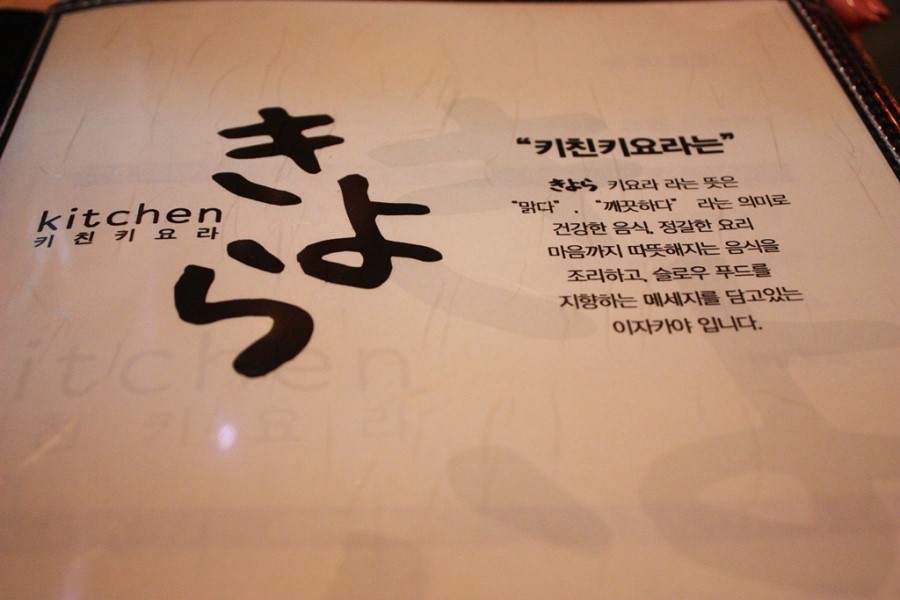 きよら
kitchen
키친키요라
“키친키요라는”
きよら 키요라 라는 뜻은
“맑다”. “깨끗하다” 라는 의미로
건강한 음식, 정갈한 요리
마음까지 따뜻해지는 음식을
조리하고, 슬로우 푸드를
지향하는 메세지를 담고있는
이자카야 입니다.